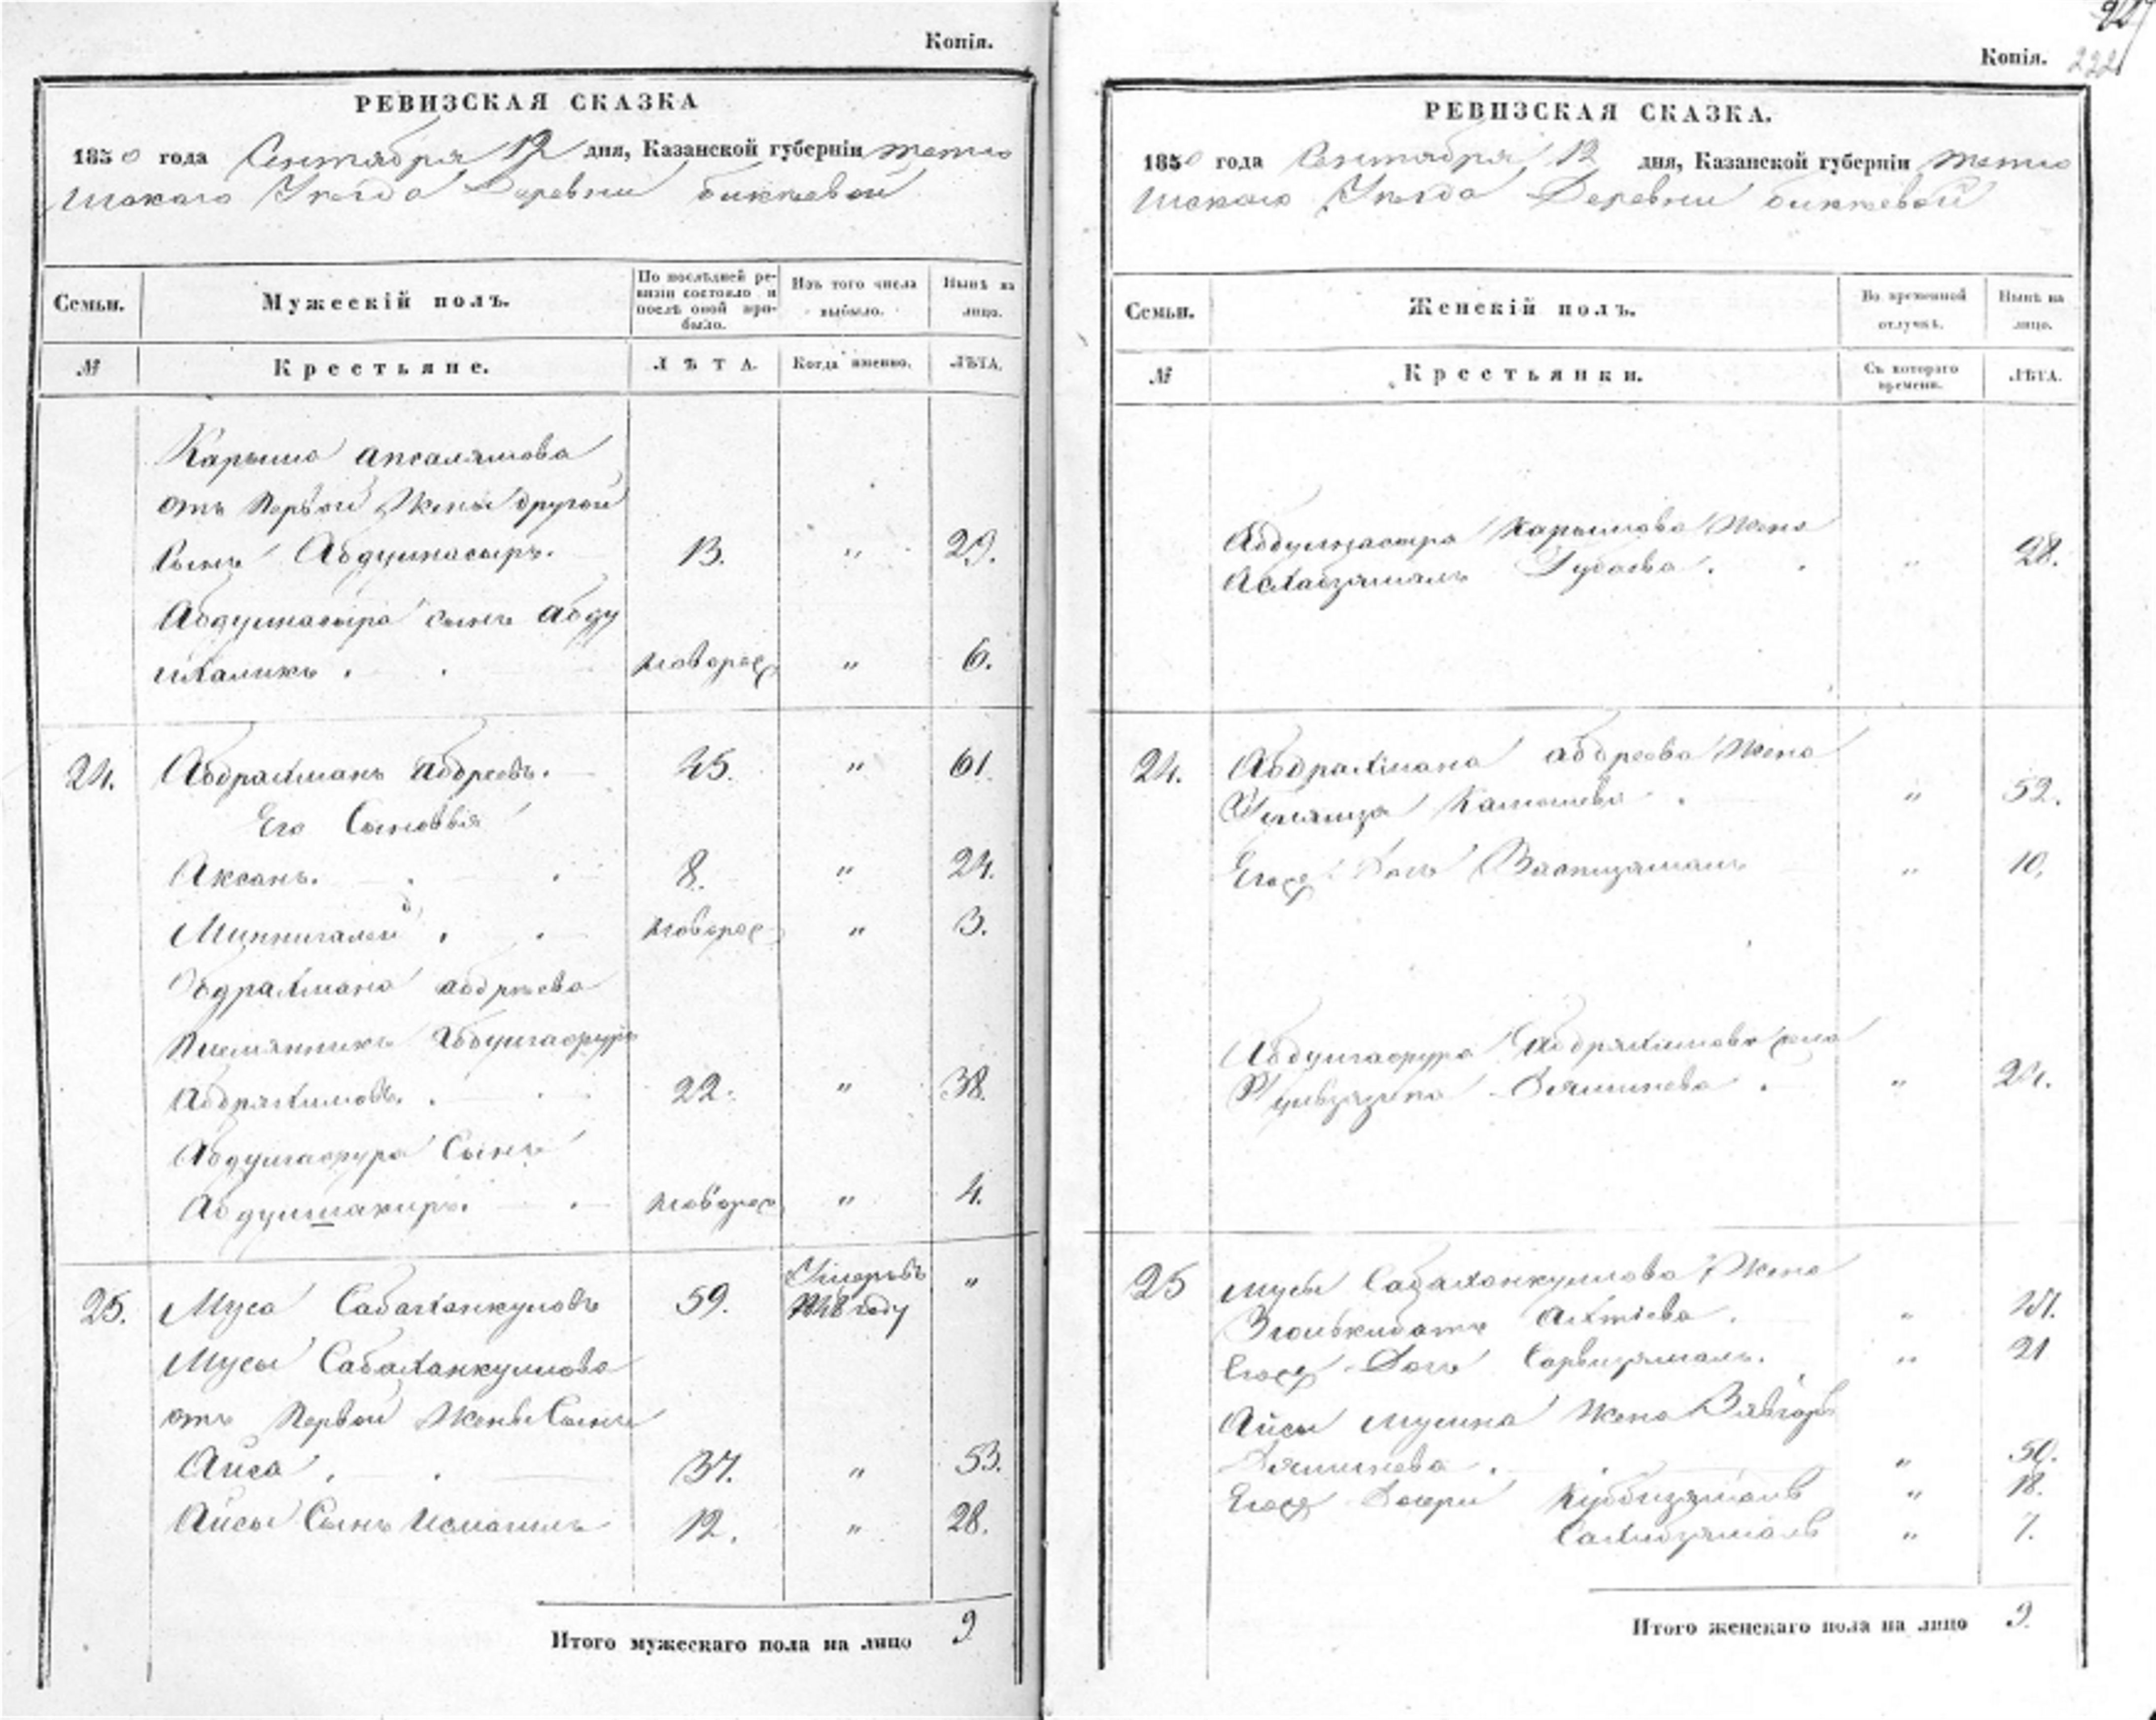 Копія.
РЕВИЗСКАЯ СКАЗКА
1850 года Сентября 12 дня, Казанской губерніи тетю
шскаго Уѣзда Деревни биккѣевой
Семьи.
Мужескій полъ.
По послѣдней ре-
визіи состояло и
послѣ оной при-
было.
Изъ того числа
выбыло.
Нынѣ на
лицо.
№
Крестьяне.
ЛѢТА.
Когда именно.
ЛѢТА.
Карыма апсалямова
отъ первой Жены другой
Сынъ Абдулнасыръ. 13. " 29.
Абдулнасыра сынъ абду
лхаликъ. новорож " 6.
24. Абдрахманъ абдреевъ. 45. " 61.
Его Сыновья
Аксанъ. 8. " 24.
Миннигалей новорож " 3.
абдрахмана абдрѣева
племянникъ абдулгафуръ
абдряхимовъ. 22. " 38.
Абдулгафура Сынъ
Абдулшакиръ. новорож " 4.
25. Муса Сабаханкуловъ 59. Умеръ въ 1848 году "
Мусы Сабаханкулова
отъ первой жены Сынъ
Айса. 37. " 53.
Айсы Сынъ Исмагилъ 12. " 28.
Итого мужескаго пола на лицо 9
Копія.
222
РЕВИЗСКАЯ СКАЗКА.
1850 года Сентября 12 дня, Казанской губерніи тетю
шскаго Уѣзда Деревни биккѣевой
Семьи.
Женскій полъ.
Во временной
отлучкѣ.
Нынѣ на
лицо.
№
Крестьянки.
Съ котораго
времени.
ЛѢТА.
Абдулнасыра Карымова Жена
Асхабзямалъ " 28.
24. Абдрахмана абдреева Жена
" 52.
Его Дочь " 10.
Абдулгафура абдряхимова жена
" 24.
25 Мусы Сабаханкулова Жена
"
Его Дочь Сарвизямалъ. " 21
Айсы мусина Жена
" 50.
Его Дочери " 18.
Сахибзямалъ " 7.
Итого женскаго пола на лицо 9.